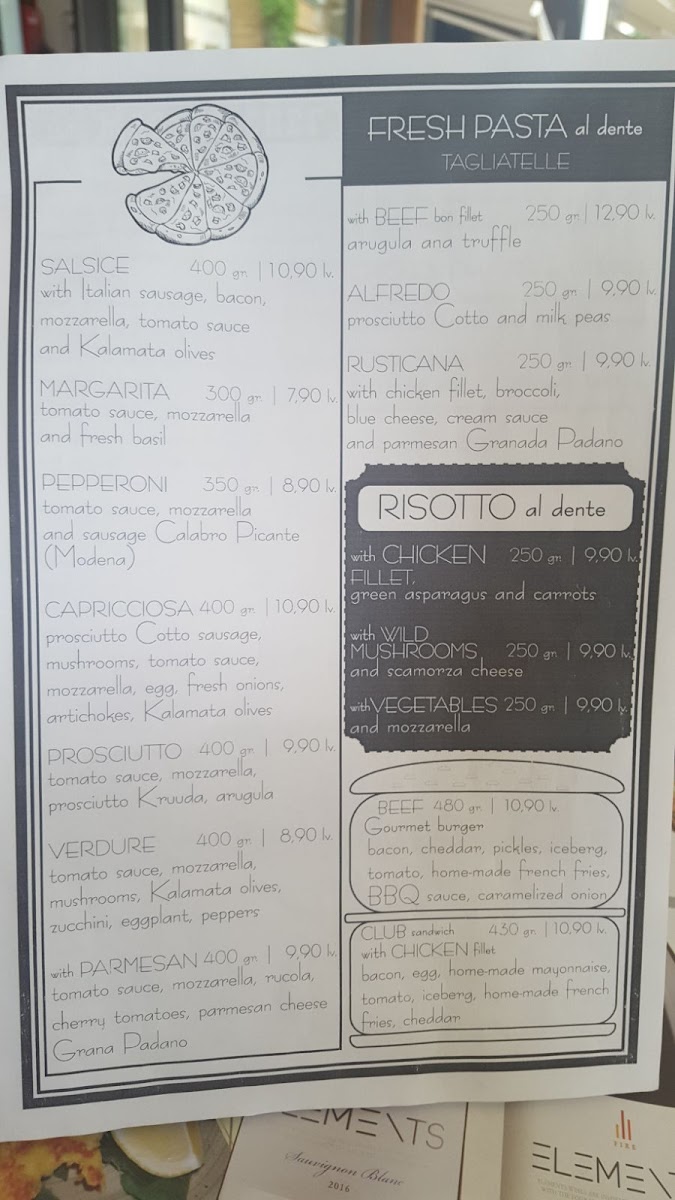 SALSICE 400 gr. | 10,90 lv.
with Italian sausage, bacon,
mozzarella, tomato sauce
and Kalamata olives
MARGARITA 300 gr. | 7,90 lv.
tomato sauce, mozzarella
and fresh basil
PEPPERONI 350 gr. | 8,90 lv.
tomato sauce, mozzarella
and sausage Calabro Picante
(Modena)
CAPRICCIOSA 400 gr. | 10,90 lv.
prosciutto Cotto sausage,
mushrooms, tomato sauce,
mozzarella, egg, fresh onions,
artichokes, Kalamata olives
PROSCIUTTO 400 gr. | 9,90 lv.
tomato sauce, mozzarella,
prosciutto Kruuda, arugula
VERDURE 400 gr. | 8,90 lv.
tomato sauce, mozzarella,
mushrooms, Kalamata olives,
zucchini, eggplant, peppers
with PARMESAN 400 gr. | 9,90 lv.
tomato sauce, mozzarella, rucola,
cherry tomatoes, parmesan cheese
Grana Padano
FRESH PASTA al dente
TAGLIATELLE
with BEEF bon fillet 250 gr. | 12,90 lv.
arugula ana truffle
ALFREDO 250 gr. | 9,90 lv.
prosciutto Cotto and milk peas
RUSTICANA 250 gr. | 9,90 lv.
with chicken fillet, broccoli,
blue cheese, cream sauce
and parmesan Granada Padano
RISOTTO al dente
with CHICKEN 250 gr. | 9,90 lv.
FILLET,
green asparagus and carrots
with WILD
MUSHROOMS 250 gr. | 9,90 lv.
and scamorza cheese
with VEGETABLES 250 gr. | 9,90 lv.
and mozzarella
BEEF 480 gr. | 10,90 lv.
Gourmet burger
bacon, cheddar, pickles, iceberg,
tomato, home-made french fries,
BBQ sauce, caramelized onion
CLUB sandwich 430 gr. | 10,90 lv.
with CHICKEN fillet
bacon, egg, home-made mayonnaise,
tomato, iceberg, home-made french
fries, cheddar
ELEMENTS
Sauvignon Blanc
2016
FIRE
ELEMEN